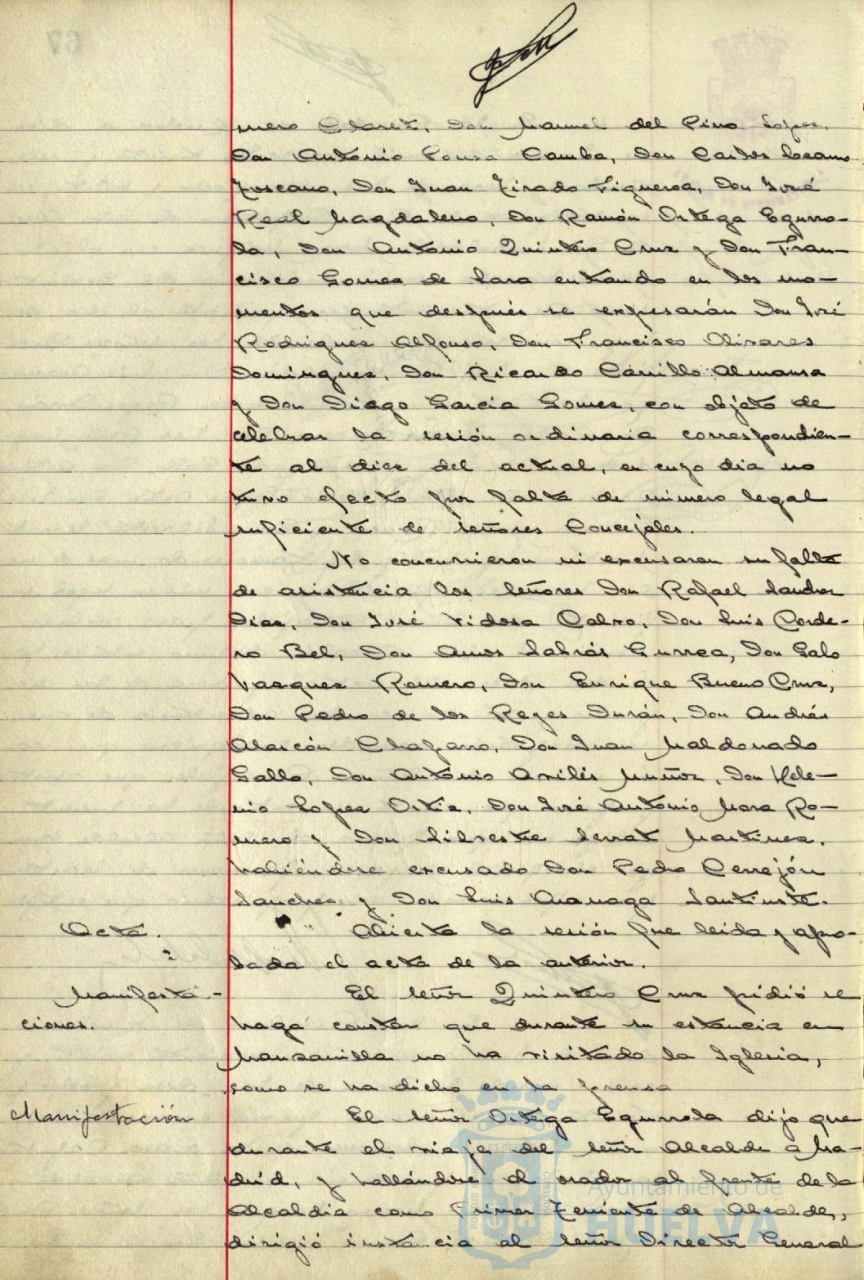 mero Claret, Don Manuel del Pino Lopez,
Don Antonio Pousa Camba, Don Carlos Lozano
Toscano, Don Juan Tirado Figueroa, Don José
Real Magdaleno, Don Ramón Ortega Egurro-
la, Don Antonio Quintero Cruz y Don Fran-
cisco Gomez de Lara entrando en los mo-
mentos que después se expesarán Don José
Rodriguez Alfonso, Don Francisco Olivares
Dominguez, Don Ricardo Carrillo Almansa
y Don Diego Garcia Gomez, con objeto de
celebrar la sesión ordinaria correspondien-
te al diez del actual, en cuyo dia no
tuvo efecto por falta de número legal
suficiente de señores Concejales.
No concurrieron ni excusaron su falta
de asistencia los señores Don Rafael
Diaz, Don José Vidosa Calvo, Don Luis Corde-
ro Bel, Don Amos Sabrás Gurrea, Don Galo
Vazquez Romero, Don Enrique Bueno Cruz,
Don Pedro de los Reyes Durán, Don Andrés
Alarcón Chaparro, Don Juan Maldonado
Gallo, Don Antonio Avilés Muñoz, Don Hele-
nio Lopez Ortiz, Don José Antonio Mora Ro-
mero y Don Silvestre Serrat Martinez,
habiéndose excusado Don Pedro Cerrejón
Sanchez y Don Luis
Acta.
Abierta la sesión fue leida y apro-
bada el acta de la anterior.
Manifesta-
ciones.
El señor Quintero Cruz pidió se
haga constar que durante su estancia en
Manzanilla no ha visitado la Iglesia,
como se ha dicho en la prensa
Manifestación
El señor Ortega Egurrola dijo que
durante el viaje del señor Alcalde a Ma-
drid, y hallándose el orador al frente de la
Alcaldia como Primer Teniente de Alcalde,
dirigió instancia al señor Director General
Ayuntamiento de
HUELVA